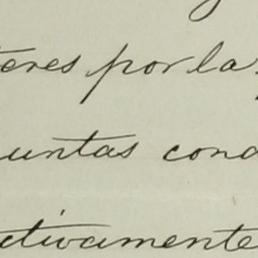 teres por la
untas cond
ctivamente